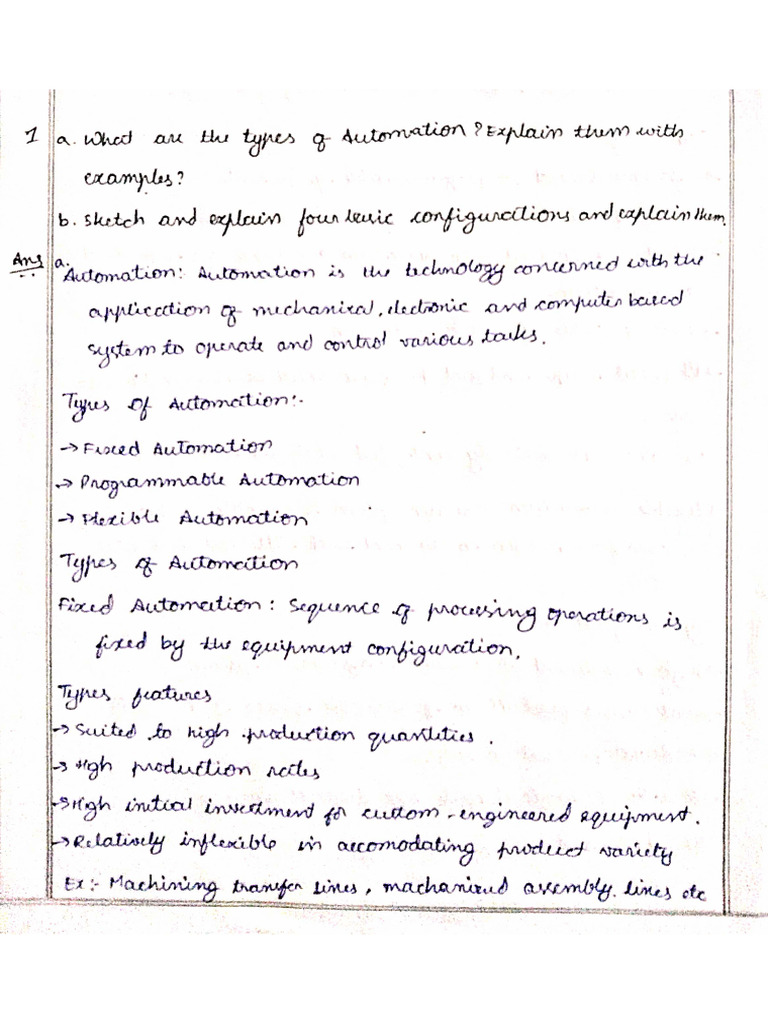 1 a. What are the types of Automation? Explain them with
examples?
b. Sketch and explain four basic configurations and explain them.
Ans a.
Automation: Automation is the technology concerned with the
application of mechanical, electronic and computer based
system to operate and control various tasks.
Types of Automation:-
→ Fixed Automation
→ Programmable Automation
→ Flexible Automation
Types of Automation
Fixed Automation: Sequence of processing operations is
fixed by the equipment configuration.
Types features
→ Suited to high production quantities.
→ High production rates
→ High initial investment for custom-engineered equipment.
→ Relatively inflexible in accomodating product variety
Ex:- Machining transfer lines, machanized assembly lines etc